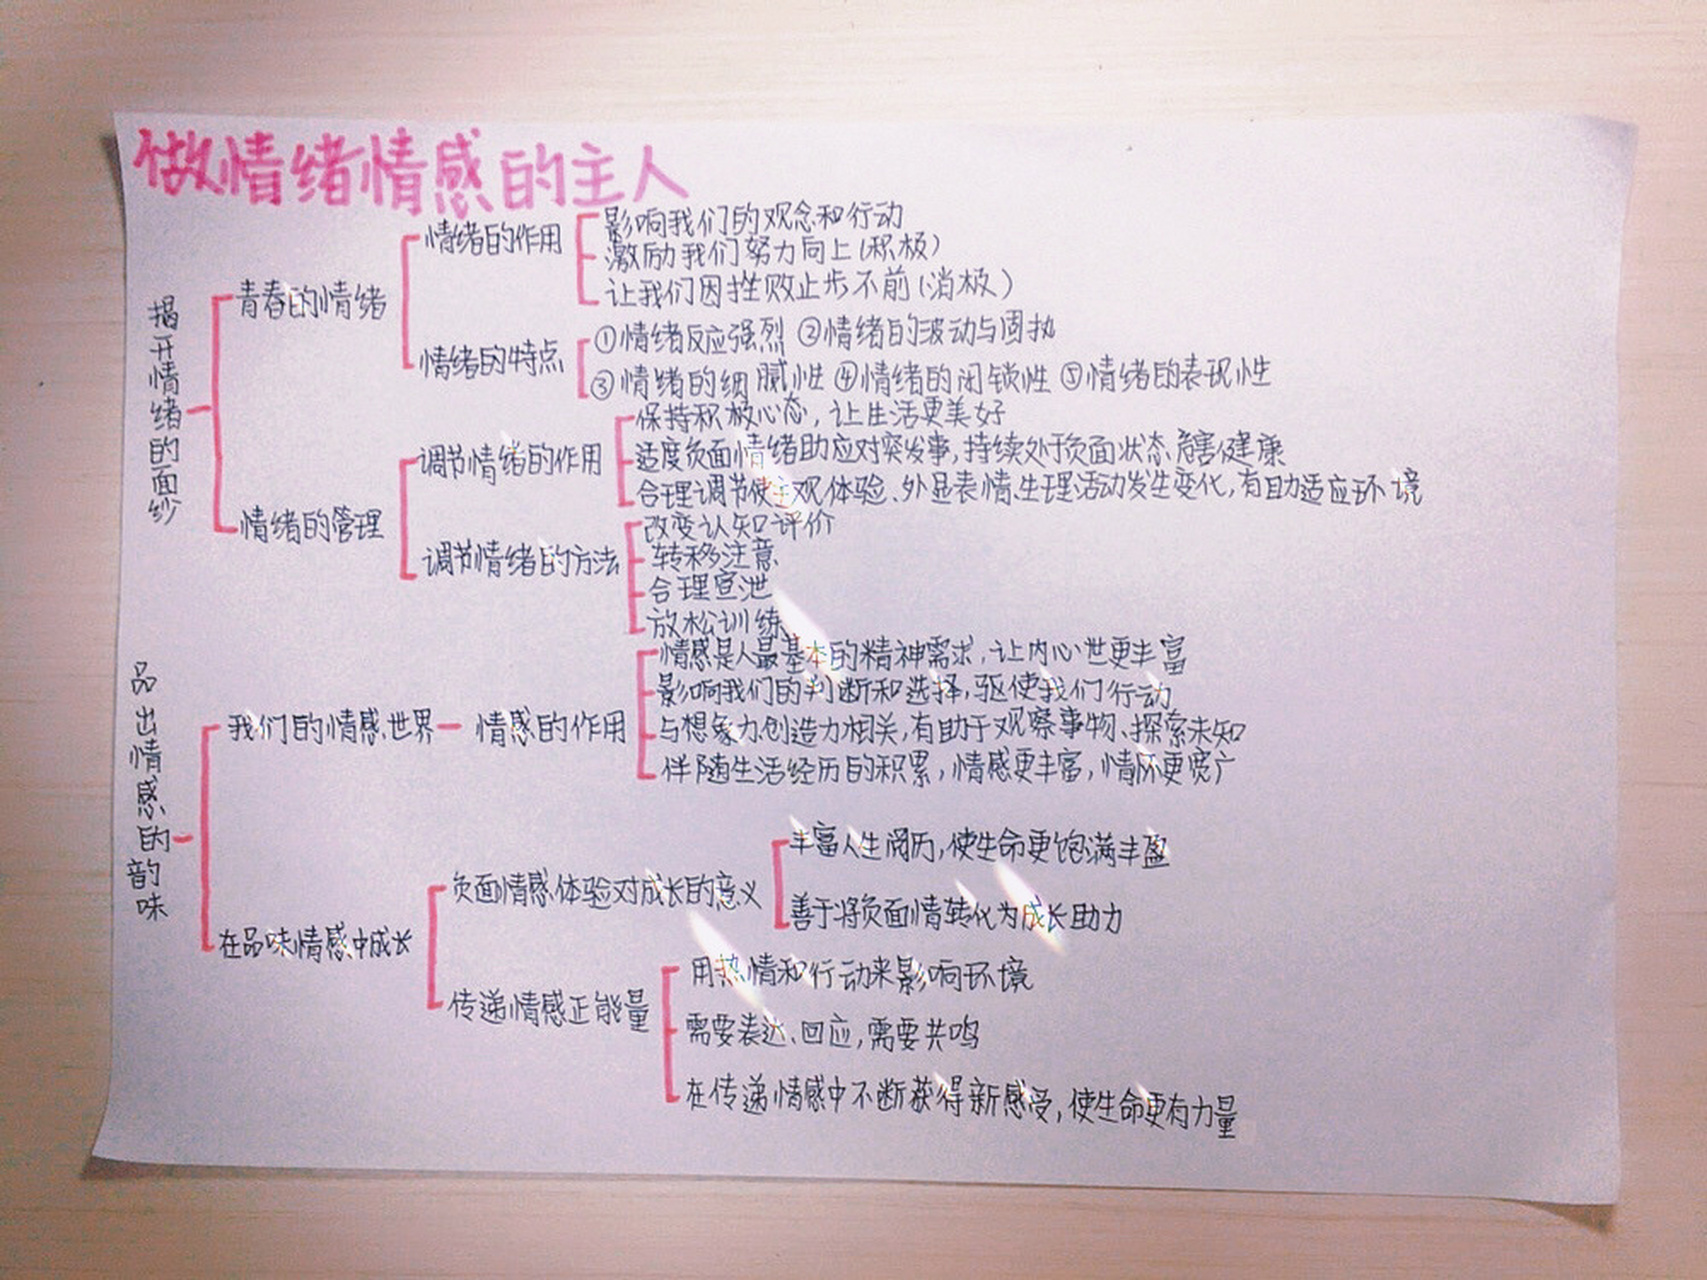 做情绪情感的主人
揭开情绪的面纱
青春的情绪
情绪的作用
影响我们的观念和行动
激励我们努力向上(积极)
让我们因挫败止步不前(消极)
情绪的特点
①情绪反应强烈 ②情绪的波动与固执
③情绪的细腻性 ④情绪的闭锁性 ⑤情绪的表现性
情绪的管理
调节情绪的作用
保持积极心态,让生活更美好
适度负面情绪助应对突发事,持续处于负面状态危害健康
合理调节使主观体验、外显表情、生理活动发生变化,有助适应环境
调节情绪的方法
改变认知评价
转移注意
合理宣泄
放松训练
品出情感的韵味
我们的情感世界
情感的作用
情感是人最基本的精神需求,让内心世更丰富
影响我们的判断和选择,驱使我们行动
与想象力、创造力相关,有助于观察事物、探索未知
伴随生活经历的积累,情感更丰富,情怀更宽广
在品味情感中成长
负面情感体验对成长的意义
丰富人生阅历,使生命更饱满丰盈
善于将负面情转化为成长助力
传递情感正能量
用热情和行动来影响环境
需要表达、回应,需要共鸣
在传递情感中不断获得新感受,使生命更有力量